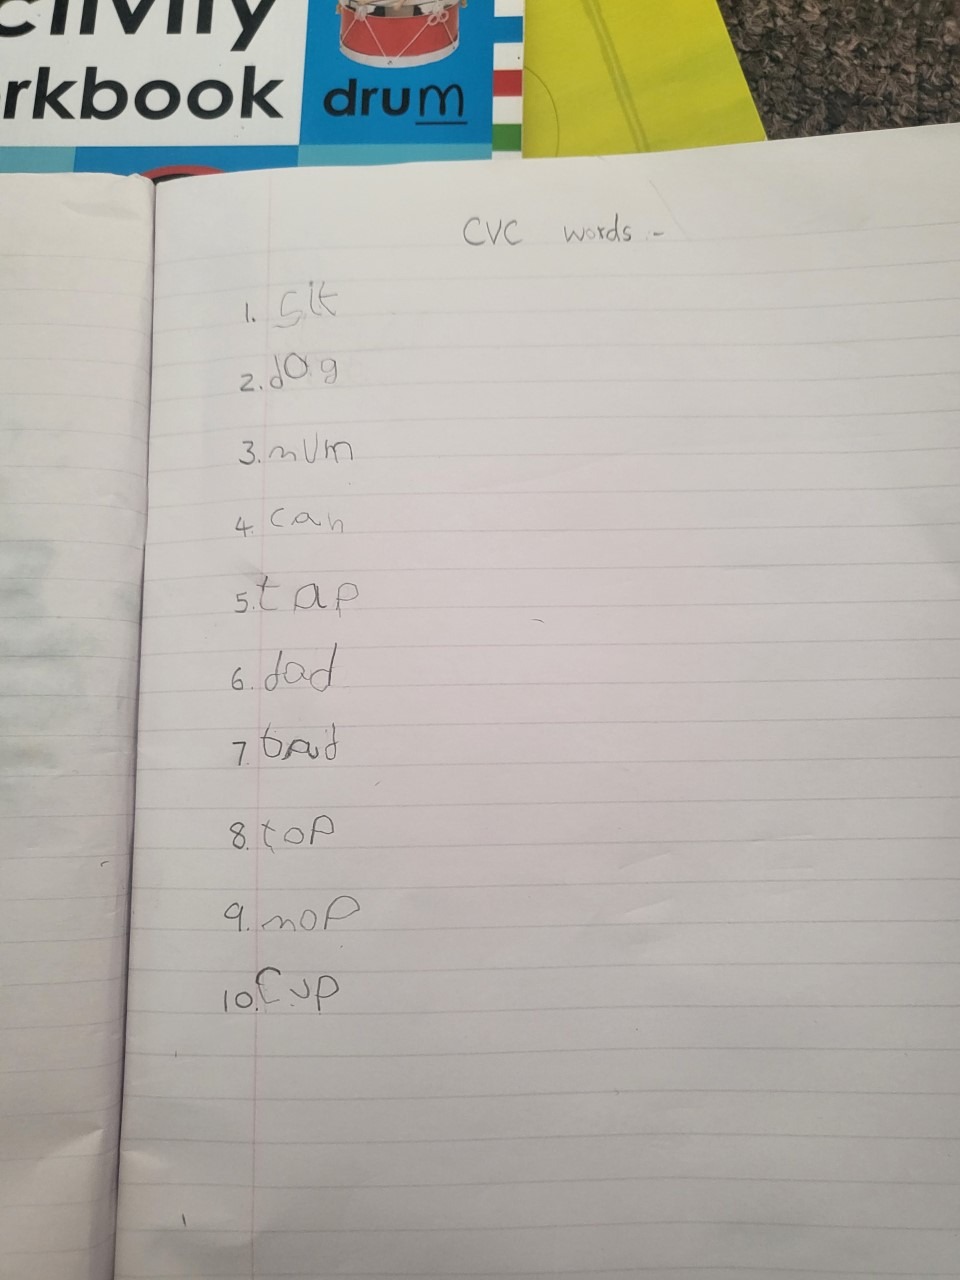 ctivity
rkbook
drum
CVC words -
1. sit
2. dog
3. mum
4. can
5. tap
6. dad
7. bad
8. top
9. mop
10. cup